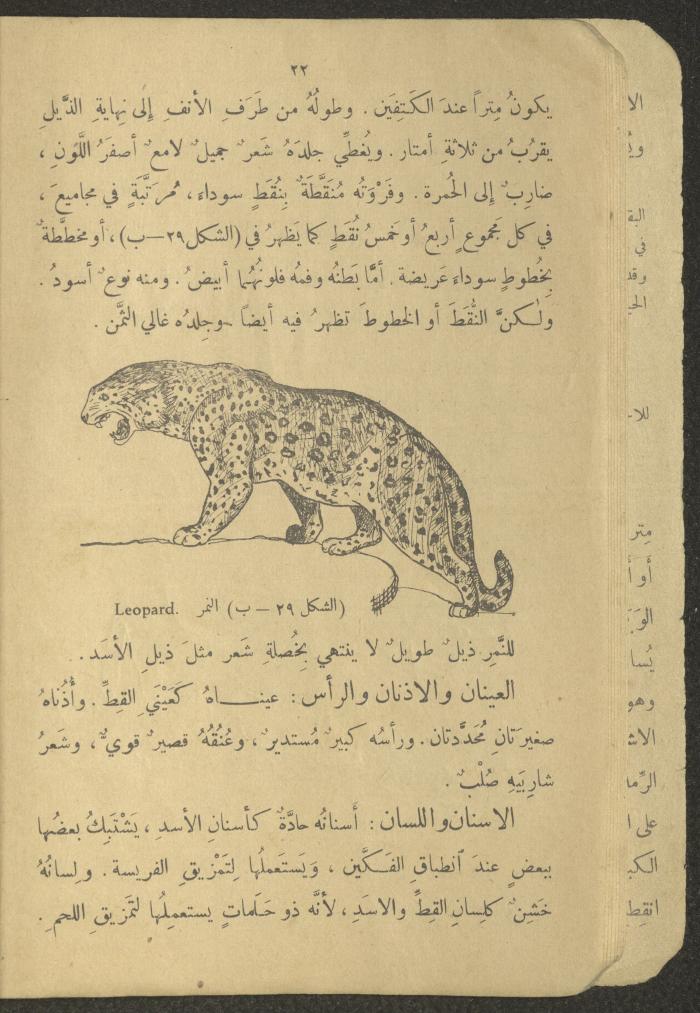 ٢٢
يكونُ مِتراً عندَ الكَتِفَين . وطولُهُ من طَرَفِ الأنفِ إِلى نِهايةِ الذَّيلِ
يقرُبُ من ثلاثةِ أمتار . ويُغطِّي جلدَهُ شَعرٌ جميلٌ لامعٌ أصفرُ اللَّونِ ،
ضارِبٌ إِلى الحُمرة . وفَرْوَتُه مُنَقَّطَةٌ بِنُقَطٍ سوداءَ ، مُرَتَّبَةٍ في مجاميعَ ،
في كل مَجموعٍ أربعُ أو خَمسُ نُقَطٍ كما يَظهرُ في (الشكل ٢٩ – ب) ، أو مخطَّطةٌ
بِخُطوطٍ سوداءَ عَريضة . أمَّا بَطنُه وفمُه فلونُهُما أبيضُ . ومنه نوعٌ أسودُ .
ولٰكنَّ النُّقَطَ أو الخطوطَ تظهرُ فيه أيضاً . وجِلدُه غالي الثَّمن .
(الشكل ٢٩ – ب) النمر Leopard.
للنَّمرِ ذيلٌ طويلٌ لا ينتهي بِخُصلةِ شَعر مثلَ ذيلِ الأسَد .
العينان والاذنان والرأس : عينـاهُ كَعَيْنَيِ القِطِّ . وأُذُناهُ
صغيرَتانِ مُحَدَّدتان . ورأسُه كبيرٌ مُستديرٌ ، وعُنُقُهُ قصيرٌ قويٌّ ، وشَعرُ
شارِبَيهِ صُلْبٌ .
الاسنان واللسان : أسنانُه حادَّةٌ كأسنانِ الأسدِ ، يَشْتَبِكُ بعضُها
ببعضٍ عندَ ٱنطباقِ الفَكَّين ، وَيَستَعملُها لِتَمْزيقِ الفريسة . ولِسانُهُ
خَشِنٌ كلِسانِ القِطِّ والاسَدِ ، لأنَّه ذو حَلَماتٍ يستعمِلُها لتَمزيقِ اللحمِ .